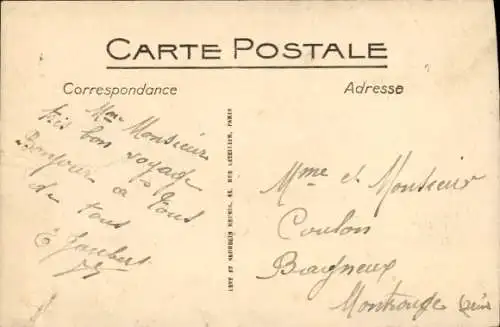 CARTE POSTALE
Correspondance
Adresse
Mme Monsieur
très bon voyage
Bonjour à tous
de tous
E Joubert
LEVY ET NEURDEIN REUNIS, 44, RUE LETELLIER, PARIS
Mme et Monsieur
Coulon
Bagneux
Montrouge